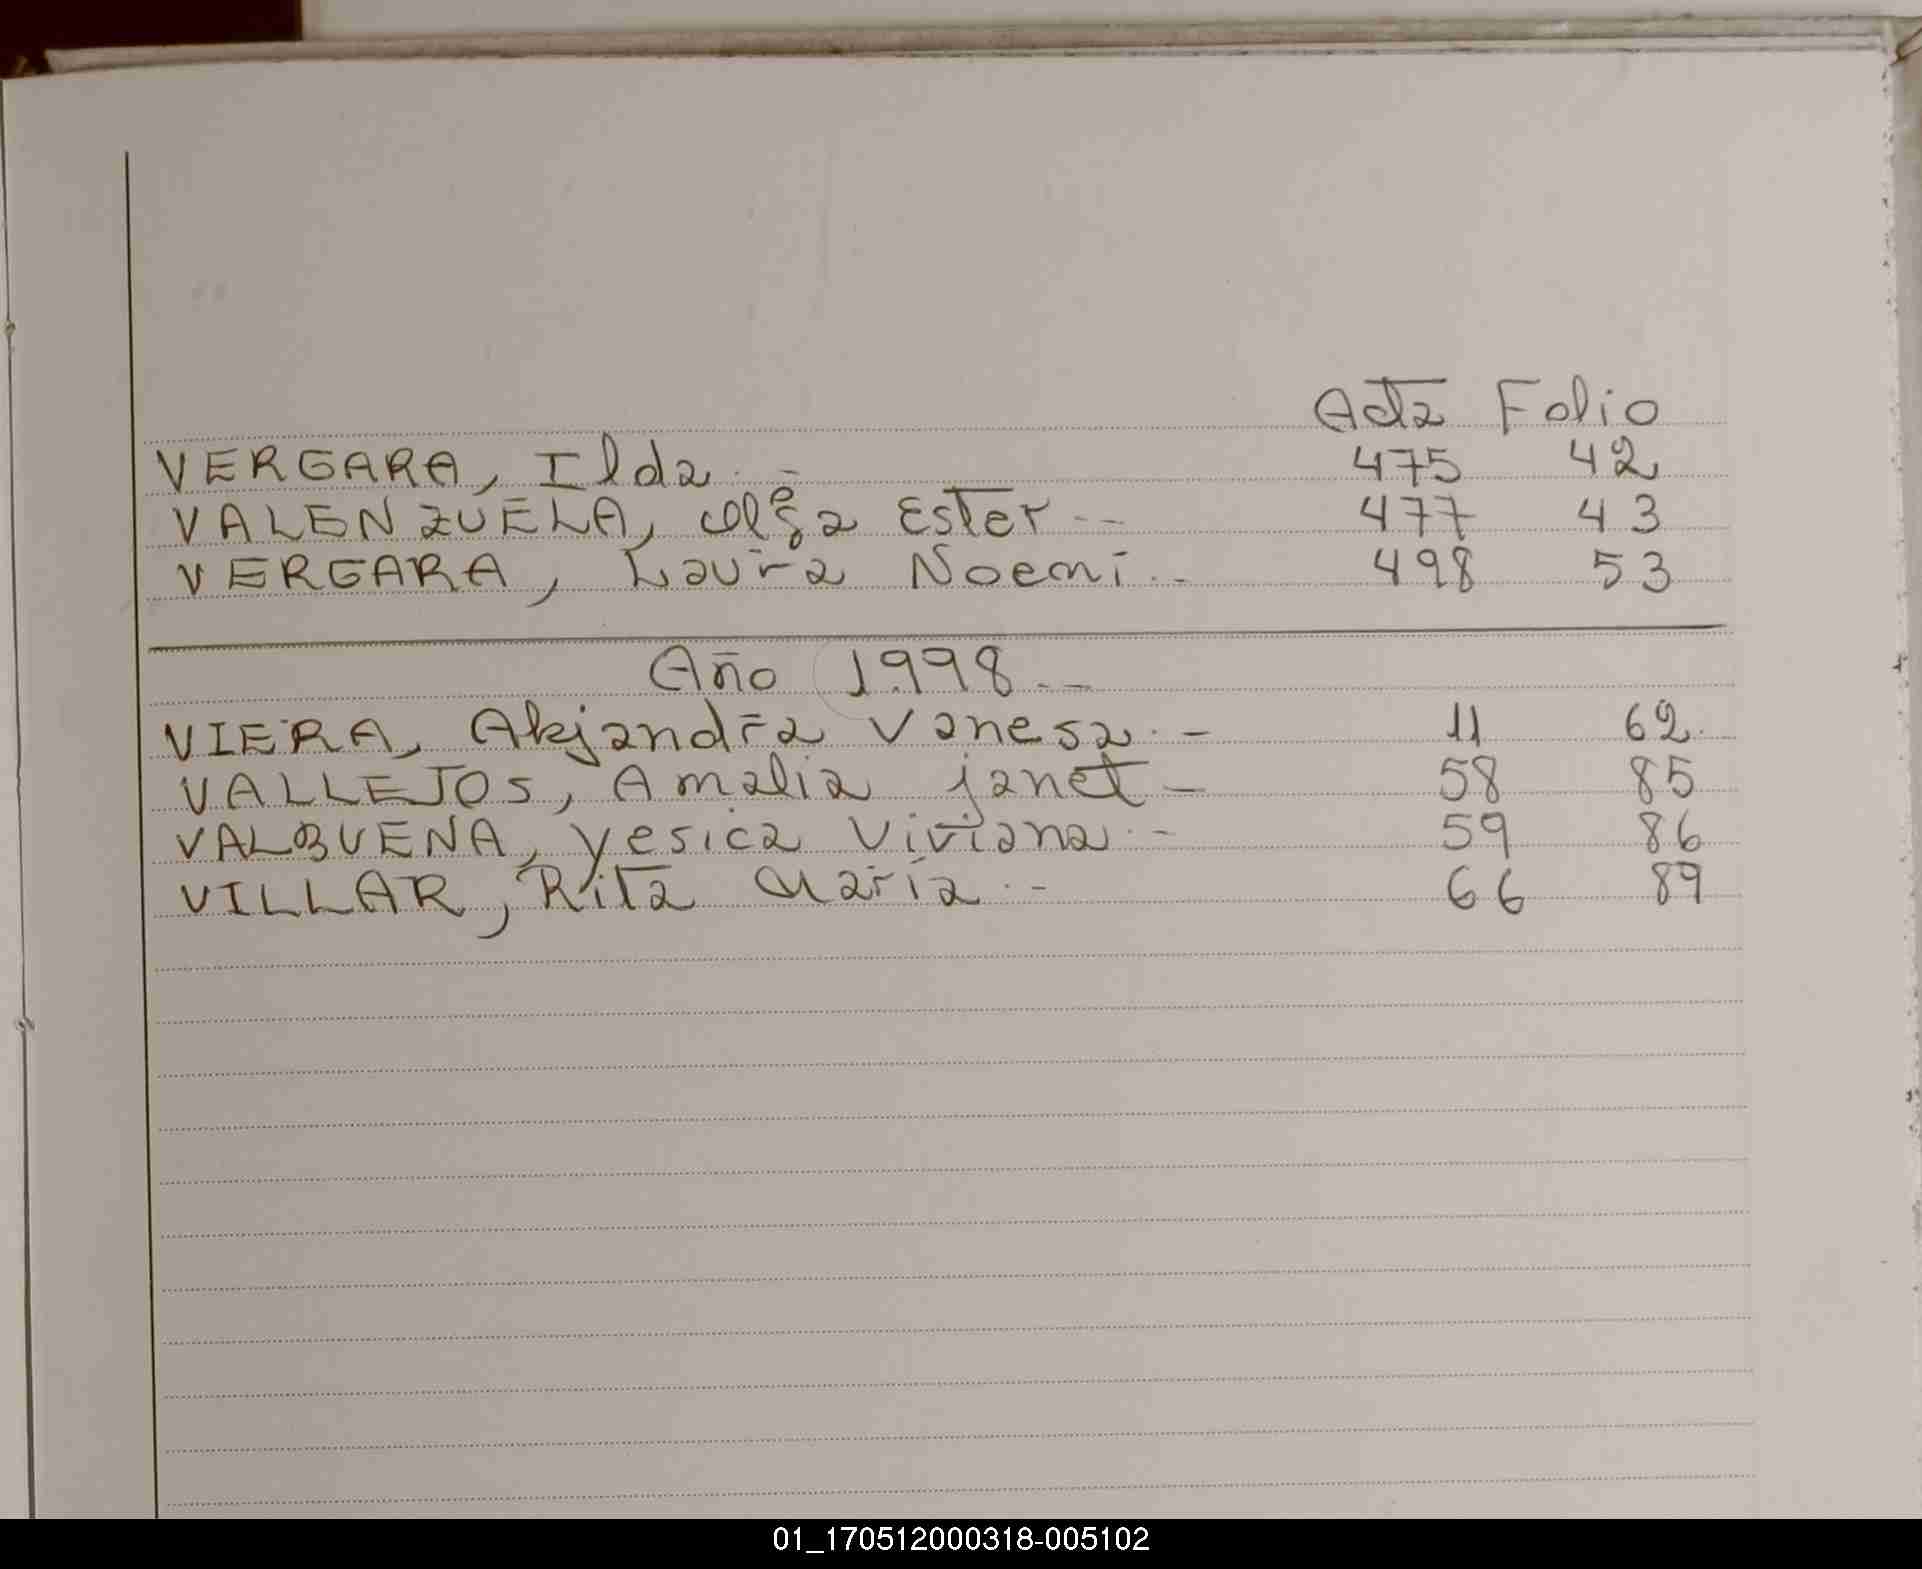 Acta Folio
VERGARA, Ilda.- 475 42
VALENZUELA, Olga Ester.-- 477 43
VERGARA, Laura Noemi.- 498 53
Año 1998.-
VIERA, Alejandra Vanesa.- 11 62.
VALLEJOS, Amalia Janet- 58 85
VALBUENA, Yesica Viviana.- 59 86
VILLAR, Rita Maria.- 66 89
01_170512000318-005102